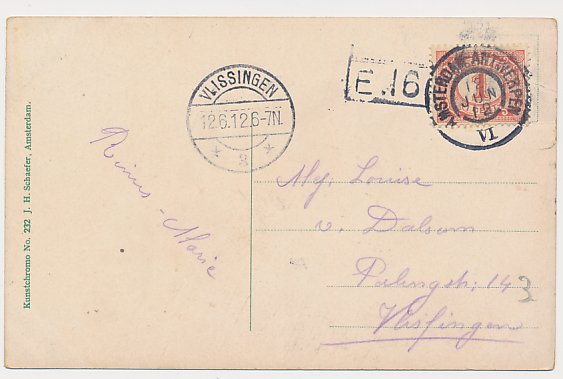 AMSTERDAM-ANTWERPEN
JUN
12
VI
1
E.16
VLISSINGEN
12.6.12.6-7N.
* 8 *
Rinus - Marie
Mej. Louise
v. Dalsum
Palingstr. 14
3
Vlissingen
Kunstchromo No. 232 J. H. Schaefer, Amsterdam.